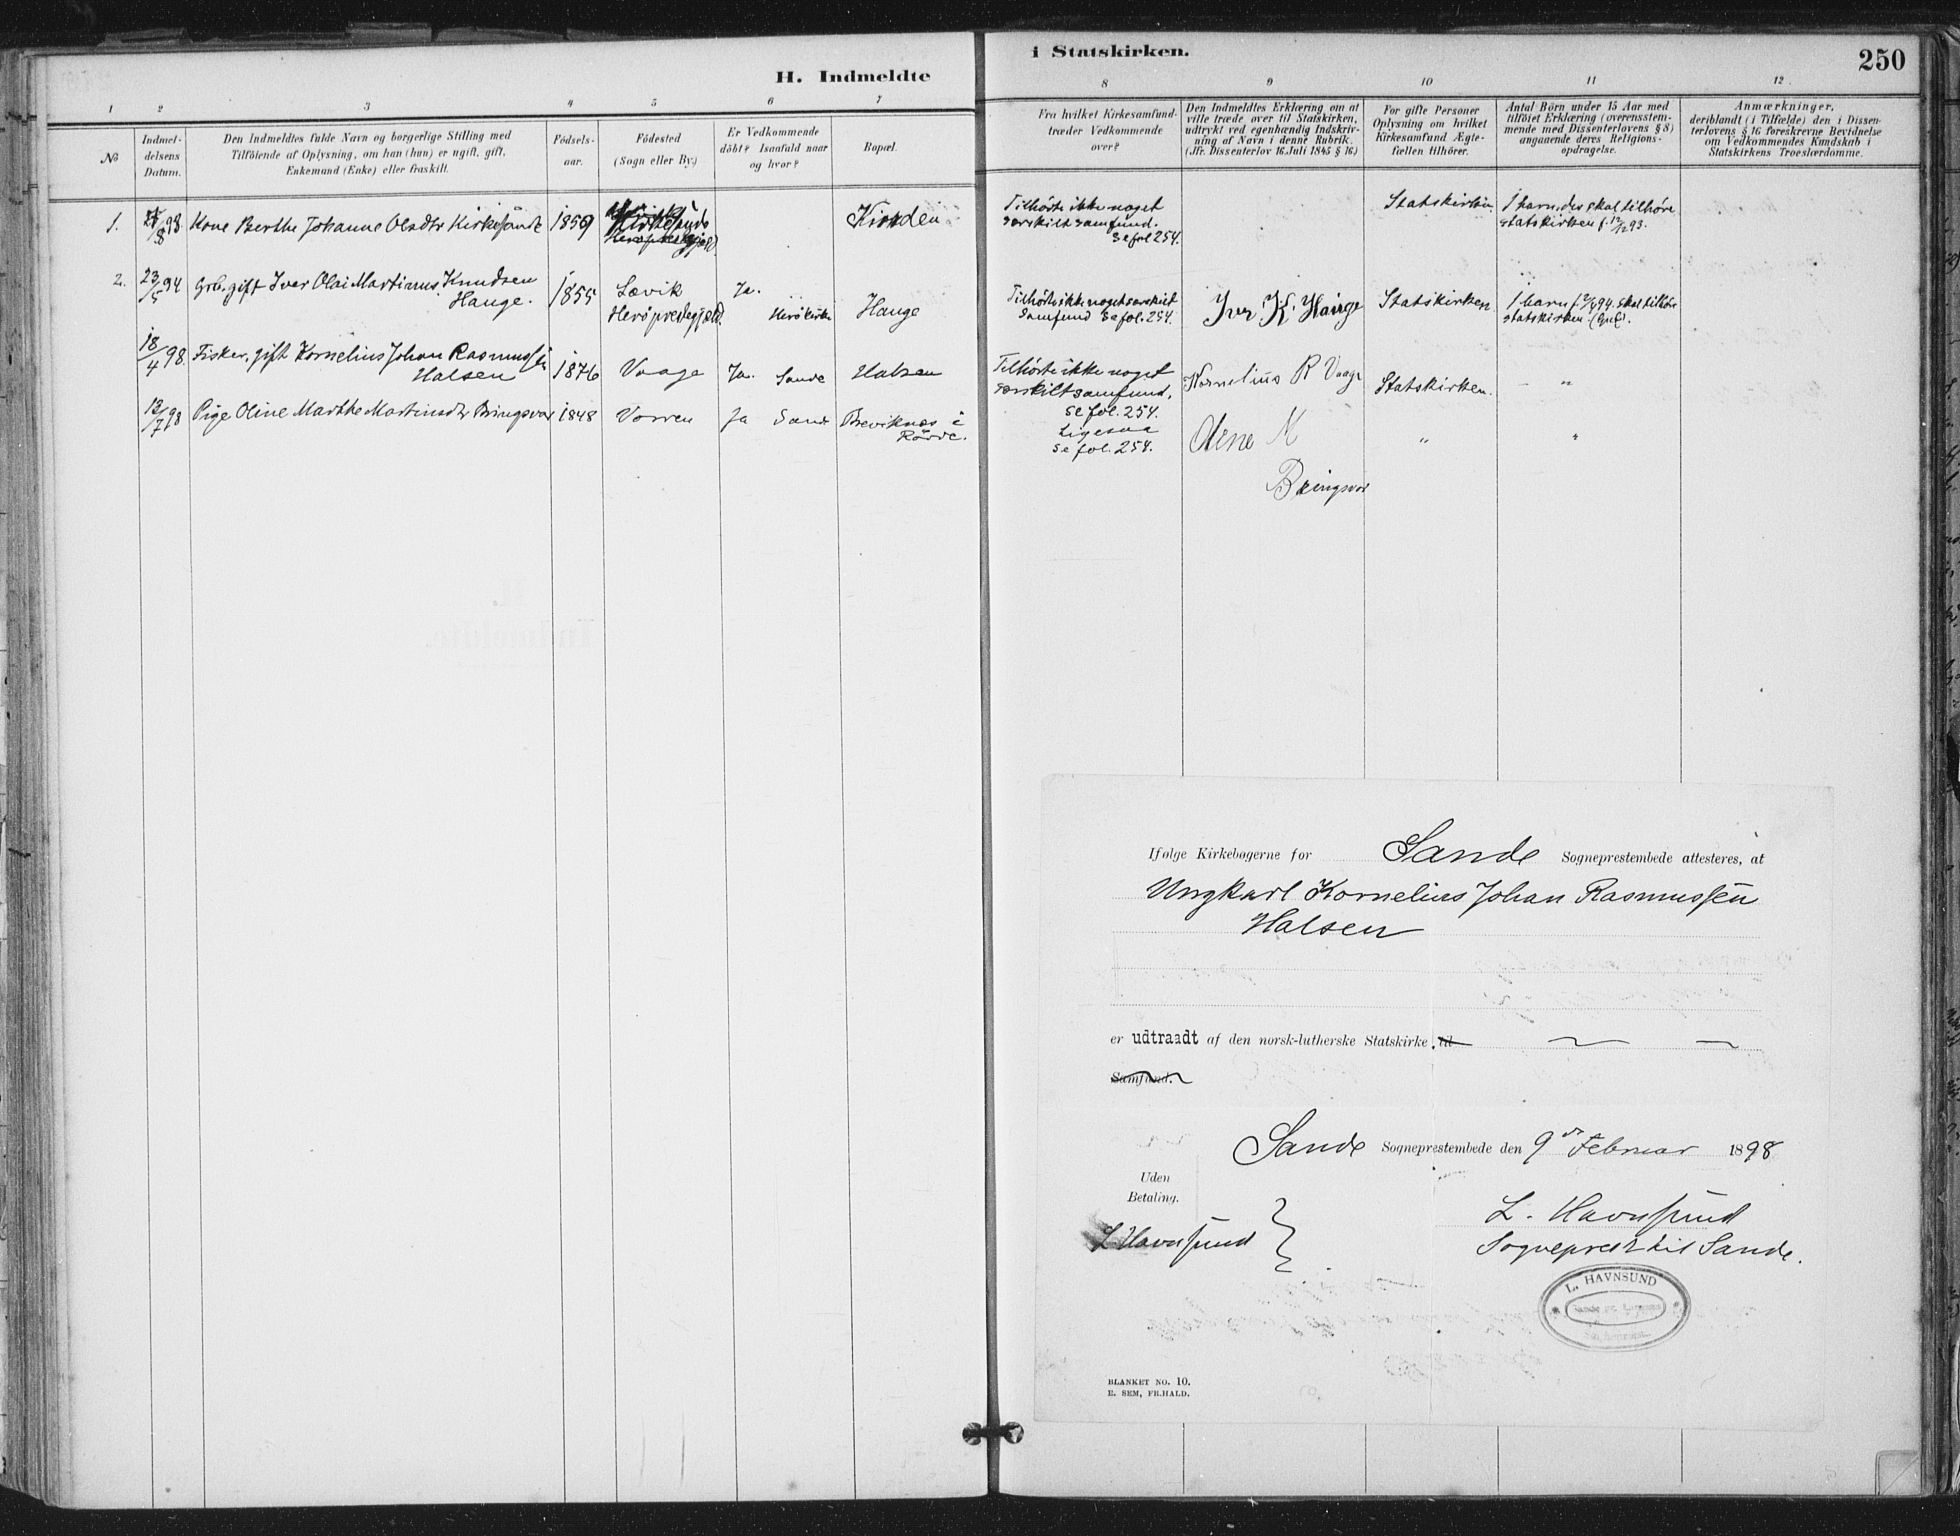 H. Indmeldte
i Statskirken.
250
1 2 3 4 5 6 7 8 9 10 11 12
№
Indmel-
delsens
Datum.
Den Indmeldtes fulde Navn og borgerlige Stilling med
Tilföiende af Oplysning, om han (hun) er ugift, gift,
Enkemand (Enke) eller fraskilt.
Födsels-
aar.
Födested
(Sogn eller By.)
Er Vedkommende
döbt? Isaafald naar
og hvor?
Bopæl.
Fra hvilket Kirkesamfund
træder Vedkommende
over?
Den Indmeldtes Erklæring om at
ville træde over til Statskirken,
udtrykt ved egenhændig Indskriv-
ning af Navn i denne Rubrik.
(Jfr. Dissenterlov 16 Juli 1845 § 16.)
For gifte Personer
Oplysning om hvilket
Kirkesamfund Ægte-
fællen tilhörer.
Antal Börn under 15 Aar med
tilföiet Erklæring (overensstem-
mende med Dissenterlovens § 8)
angaaende deres Religions-
opdragelse.
Anmærkninger,
deriblandt (i Tilfælde) den i Dissen-
terlovens § 16 foreskrevne Bevidnelse
om Vedkommendes Kundskab i
Statskirkens Troeslærdomme.
1. Kone Berthe Johanne Olsdtr Kirkesande 1859
Tilhørte ikke noget
særskilt samfund.
Se fol 254.
Statskirken.
1 barn, des skal tilhøre
statskirken f. 12/12 93.
2. 23/5 94 Grb. gift Iver Olai Martinus Knudsen
Hauge. 1855 Lævik
Herø præstegjeld. Ja. Herø kirke Hauge
Tilhørte ikke noget særskilt
samfund se fol. 254.
Iver K. Hauge Statskirken
1 barn f. 2/4 94. skal tilhøre
statskirken
18/4 98. Fisker, gift Kornelius Johan Rasmussen
Halsen 1876 Vaage Ja. Sande Halsen
Tilhørte ikke noget
særskilt samfund,
se fol. 254.
Kornelius R Vaage Statskirken. — „
13/7 98 Pige Oline Marthe Martinsdtr Bringsvor 1848 Vorren Ja Sande Breviknes i
Rovde.
Ligesaa
se fol. 254.
Oline M
Bringsvor
„ „
Ifølge Kirkebøgerne for Sande Sogneprestembede attesteres, at
Ungkarl Kornelius Johan Rasmussen
Halsen
er udtraadt af den norsk-lutherske Statskirke, til
Samfund.
Sande Sogneprestembede den 9de Februar 1898
Uden
Betaling.
L. Havnsund
L. Havnsund
Sogneprest til Sande.
L. HAVNSUND
BLANKET NO. 10.
E. SEM, FR.HALD.